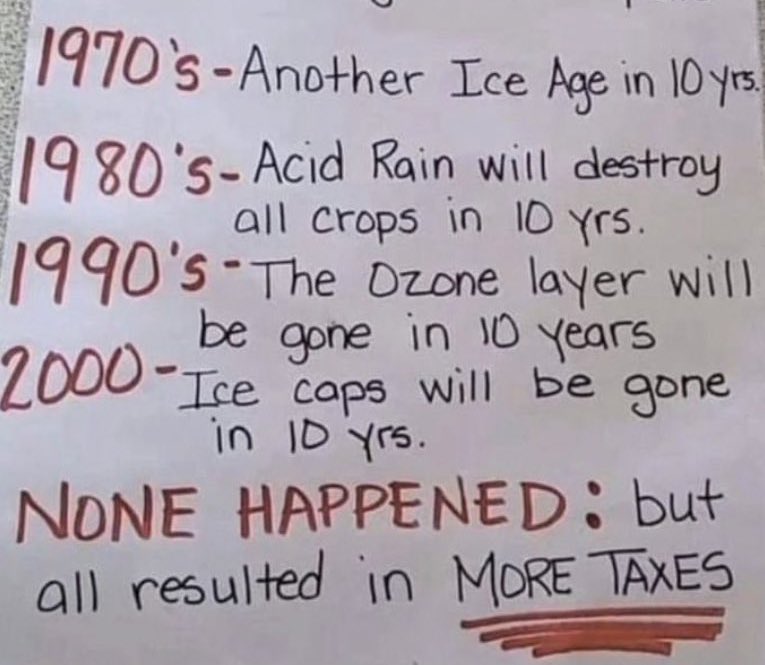 1970's - Another Ice Age in 10 yrs.
1980's - Acid Rain will destroy
all crops in 10 yrs.
1990's - The Ozone layer will
be gone in 10 years
2000 - Ice caps will be gone
in 10 yrs.
NONE HAPPENED: but
all resulted in MORE TAXES